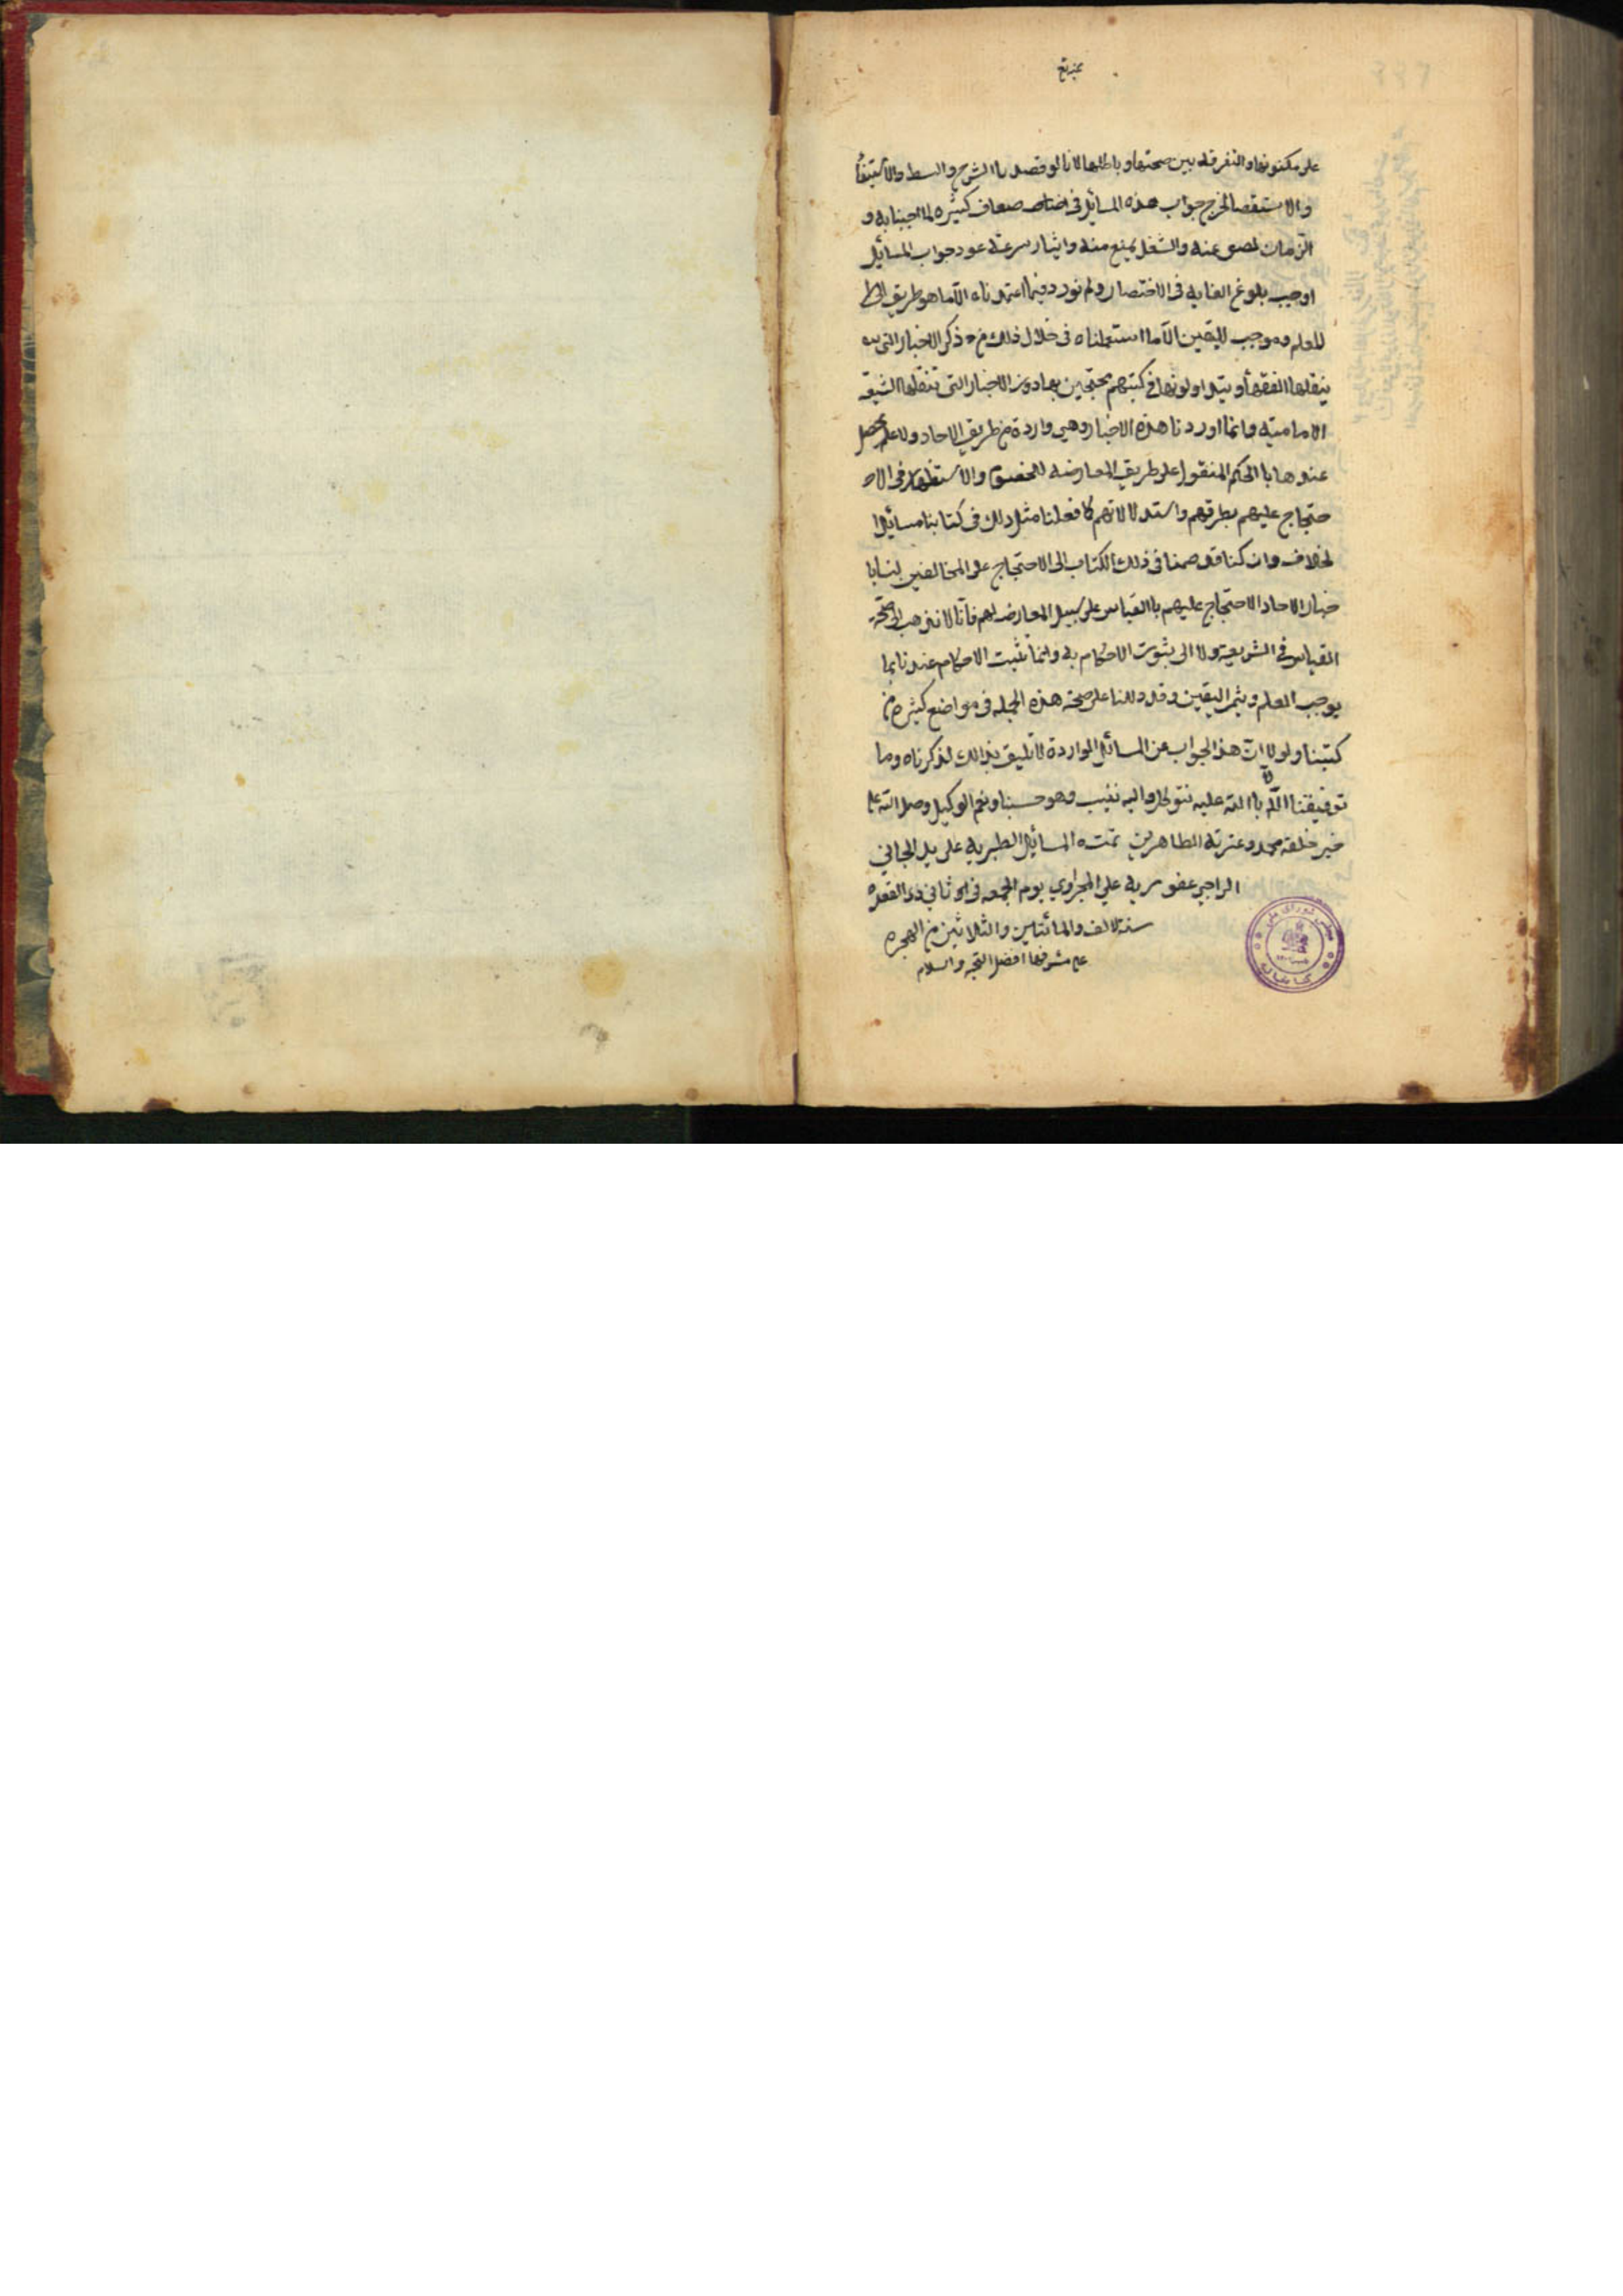 على مكنونها والتفرقه بين صحتها وباطلها لانا لو قصدنا الشرح والبسط والاستيفأ
والاستقصا لخرج جواب هذه المسايل في اضعاف كثيره لما اجبنا به و
الزمان يضيق عنه والشغل يمنع منه وايثار سرعة عود جواب المسايل
اوجب بلوغ الغايه في الاختصار ولم نورد فيما اعتمدناه الا ما هو طريق
للعلم وموجب لليقين الا ما استعملناه في خلال ذلك من ذكر الاخبار التي
ينقلها الفقهأ ويتداولونها في كتبهم محتجين بها دون الاخبار التي تنقلها الشيعه
الاماميه وانما اوردنا هذه الاخبار وهي واردة من طريق الاحاد ولا علم يحصل
عندها با الحكم المنقول على طريق المعارضه للخصوم والاستظهار في الا
حتجاج عليهم بطرقهم واستدلالاتهم كما فعلنا مثل ذلك في كتابنا مسائل ا
لخلاف وان كنا قد ضمنا في ذلك الكتاب الى الاحتجاج على المخالفين لنا با
خبار الاحاد الاحتجاج عليهم با القياس على سبيل المعارضه لهم فانا لا نذهب الى صحة
القياس في الشريعه ولا الى ثبوت الاحكام به وانما تثبت الاحكام عندنا بما
يوجب العلم ويثمر اليقين وقد دللنا على صحة هذه الجمله في مواضع كثيره من
كتبنا ولولا ان هذا الجواب عن المسائل الواردة لا تليق بذالك لذكرناه وما
توفيقنا الا با الله عليه نتوكل واليه ننيب وهو حسبنا ونعم الوكيل وصلى الله على
خير خلقه محمد وعترته الطاهرين تمت المسايل الطبريه على يد الجاني
الراجي عفو ربه علي يوم الجمعه في ثاني ذي القعده
سنة الالف والمائتين والثلاثين من الهجره
على مشرفها افضل التحيه والسلام